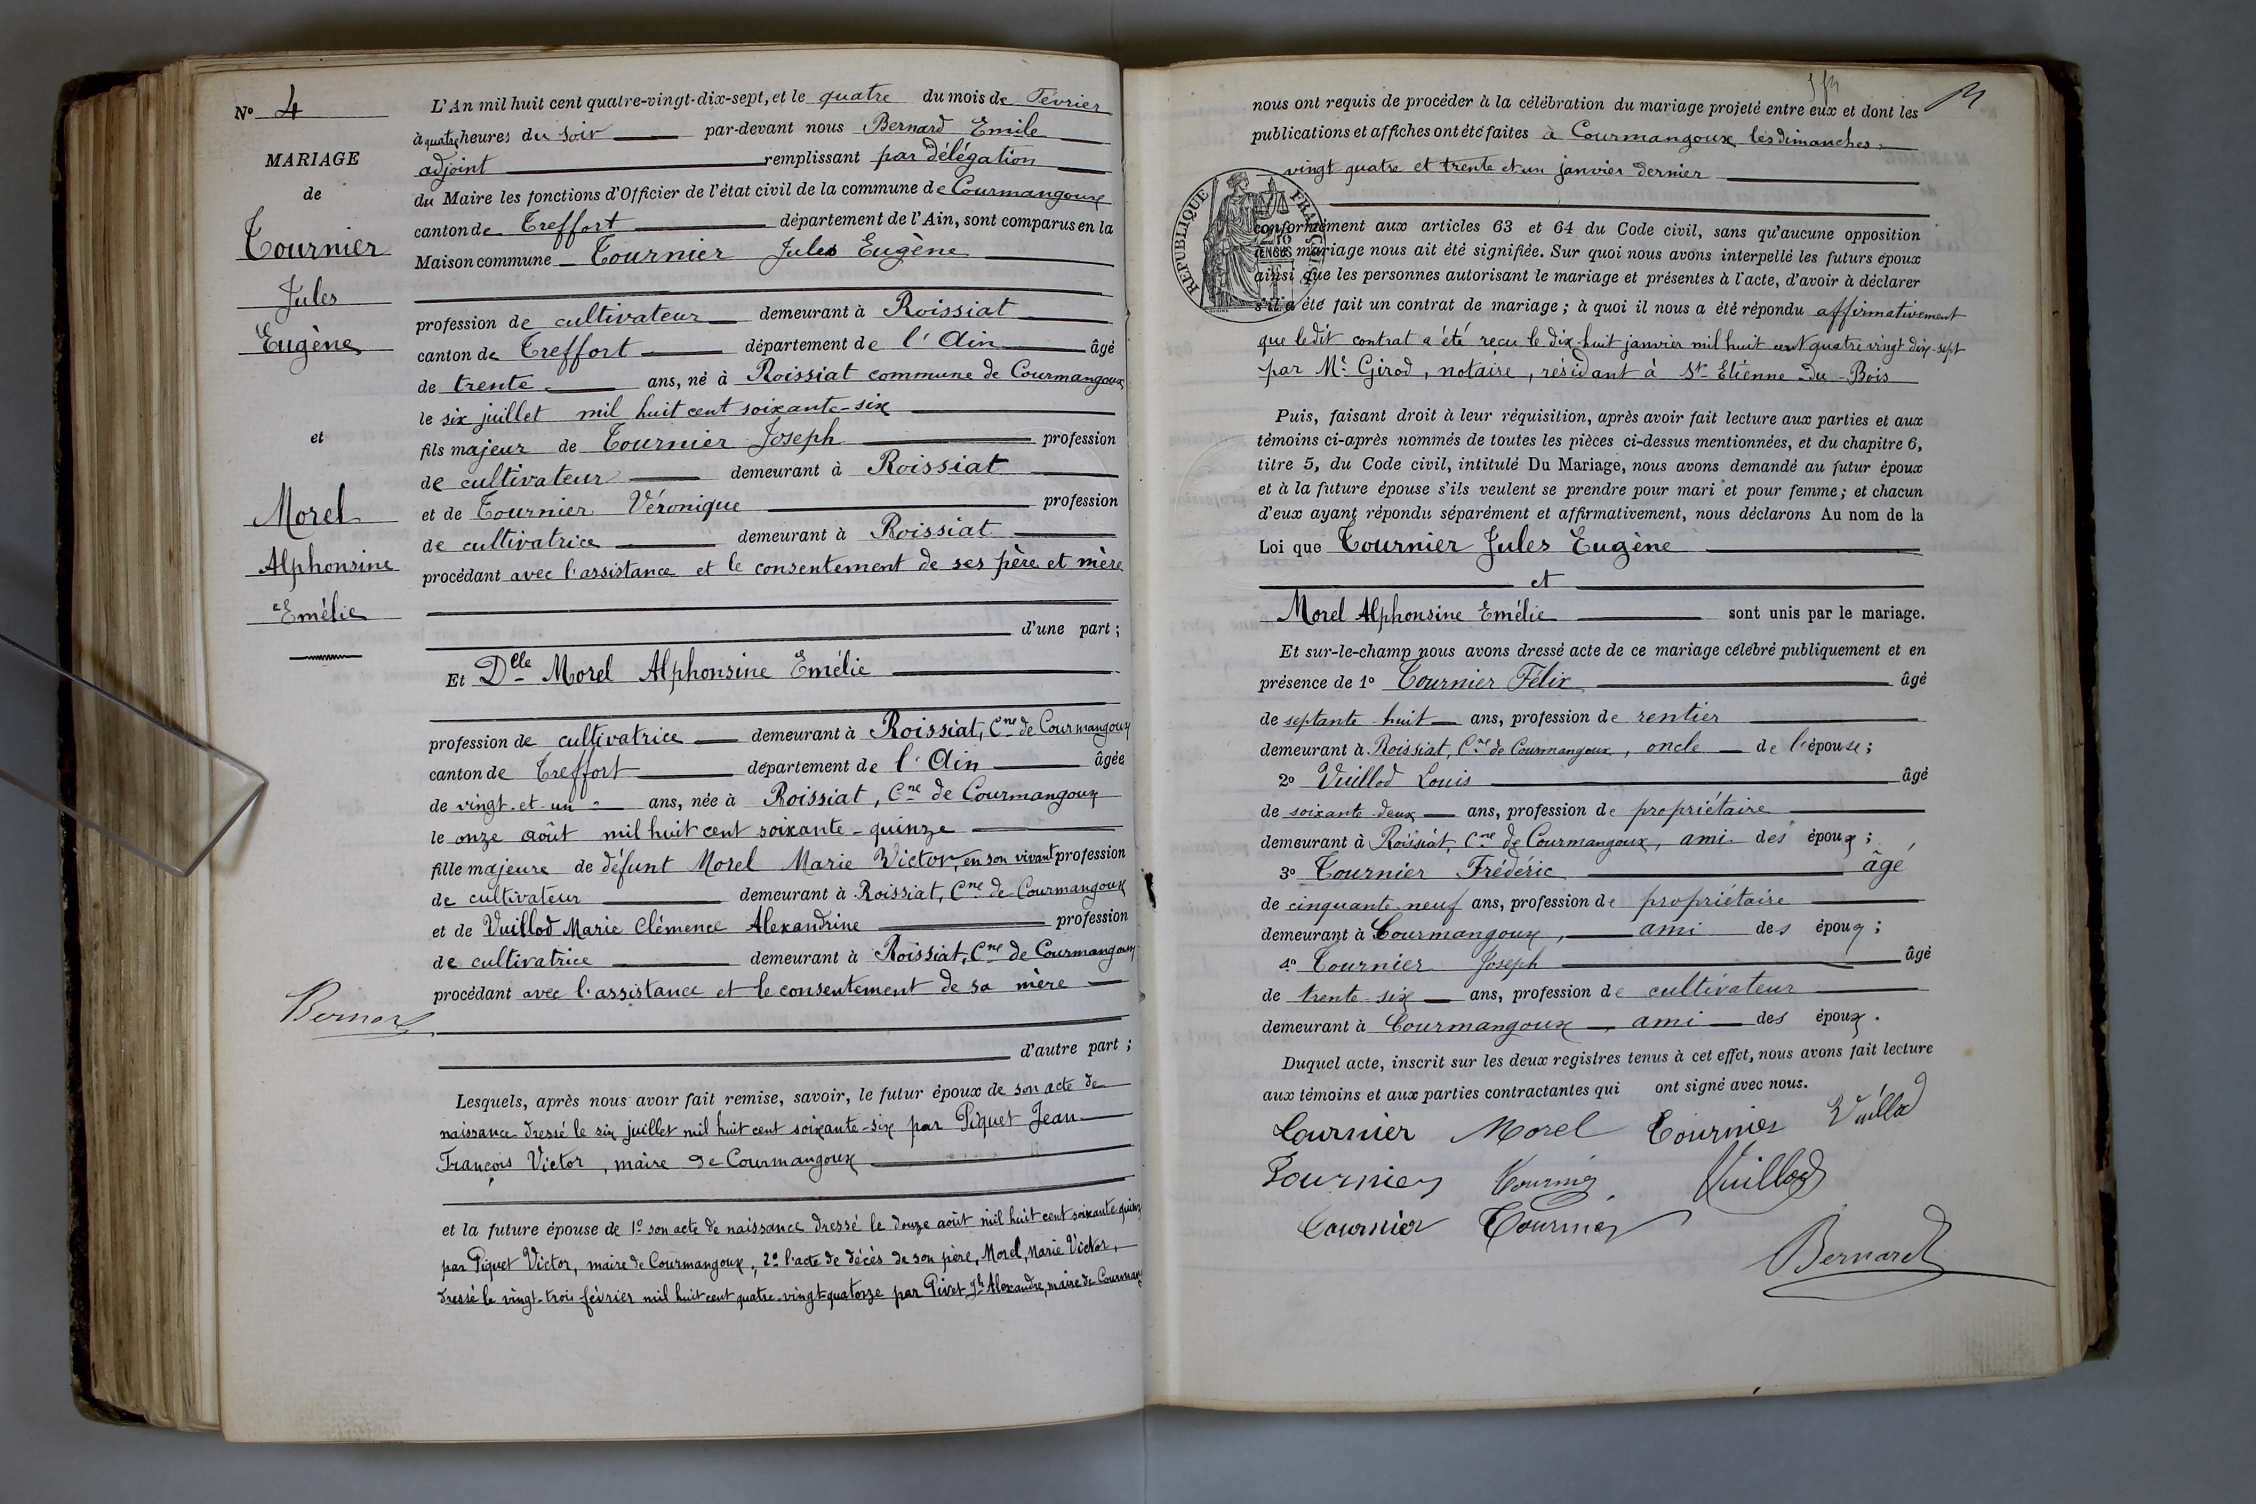 N° 4
MARIAGE
de
Tournier
Jules
Eugène
et
Morel
Alphonsine
Emélie
Bernard
L'An mil huit cent quatre-vingt-dix-sept, et le quatre du mois de Février
à quatre heures du soir par-devant nous Bernard Emile
adjoint remplissant par délégation
du Maire les fonctions d'Officier de l'état civil de la commune de Courmangoux
canton de Treffort département de l'Ain, sont comparus en la
Maison commune Tournier Jules Eugène
profession de cultivateur demeurant à Roissiat
canton de Treffort département de l'Ain âgé
de trente ans, né à Roissiat commune de Courmangoux
le six juillet mil huit cent soixante-six
fils majeur de Tournier Joseph profession
de cultivateur demeurant à Roissiat
et de Tournier Véronique profession
de cultivatrice demeurant à Roissiat
procédant avec l'assistance et le consentement de ses père et mère
d'une part ;
Et Dlle Morel Alphonsine Emélie
profession de cultivatrice demeurant à Roissiat, Cne de Courmangoux
canton de Treffort département de l'Ain âgée
de vingt-et-un ans, née à Roissiat, Cne de Courmangoux
le onze août mil huit cent soixante-quinze
fille majeure de défunt Morel Marie Victor, en son vivant profession
de cultivateur demeurant à Roissiat, Cne de Courmangoux
et de Vuillod Marie Clémence Alexandrine profession
de cultivatrice demeurant à Roissiat, Cne de Courmangoux
procédant avec l'assistance et le consentement de sa mère
d'autre part ;
Lesquels, après nous avoir fait remise, savoir, le futur époux de son acte de
naissance dressé le six juillet mil huit cent soixante-six par Piquet Jean
François Victor, maire de Courmangoux
et la future épouse de 1° son acte de naissance dressé le douze août mil huit cent soixante-quinze
par Piquet Victor, maire de Courmangoux, 2° l'acte de décès de son père, Morel, Marie Victor,
dressé le vingt-trois février mil huit cent quatre-vingt-quatorze par Pivet Jh Alexandre, maire de Courmang
nous ont requis de procéder à la célébration du mariage projeté entre eux et dont les
publications et affiches ont été faites à Courmangoux les dimanches
vingt quatre et trente et un janvier dernier
RÉPUBLIQUE FRANÇAISE
conformément aux articles 63 et 64 du Code civil, sans qu'aucune opposition
au mariage nous ait été signifiée. Sur quoi nous avons interpellé les futurs époux
ainsi que les personnes autorisant le mariage et présentes à l'acte, d'avoir à déclarer
s'il a été fait un contrat de mariage ; à quoi il nous a été répondu affirmativement
que ledit contrat a été reçu le dix-huit janvier mil huit cent quatre vingt dix-sept
par Me Girod, notaire, résidant à St-Etienne-du-Bois
Puis, faisant droit à leur réquisition, après avoir fait lecture aux parties et aux
témoins ci-après nommés de toutes les pièces ci-dessus mentionnées, et du chapitre 6,
titre 5, du Code civil, intitulé Du Mariage, nous avons demandé au futur époux
et à la future épouse s'ils veulent se prendre pour mari et pour femme ; et chacun
d'eux ayant répondu séparément et affirmativement, nous déclarons Au nom de la
Loi que Tournier Jules Eugène
et
Morel Alphonsine Emélie sont unis par le mariage.
Et sur-le-champ nous avons dressé acte de ce mariage célébré publiquement et en
présence de 1° Tournier Félix âgé
de septante huit ans, profession de rentier
demeurant à Roissiat, Cne de Courmangoux, oncle de l'épouse ;
2° Vuillod Louis âgé
de soixante-deux ans, profession de propriétaire
demeurant à Roissiat, Cne de Courmangoux, ami des époux ;
3° Tournier Frédéric âgé
de cinquante-neuf ans, profession de propriétaire
demeurant à Courmangoux, ami des époux ;
4° Tournier Joseph âgé
de trente-six ans, profession de cultivateur
demeurant à Courmangoux, ami des époux.
Duquel acte, inscrit sur les deux registres tenus à cet effet, nous avons fait lecture
aux témoins et aux parties contractantes qui ont signé avec nous.
Tournier Morel Tournier Vuillod
Tournier Tournier Vuillod
Tournier Tournier
Bernard